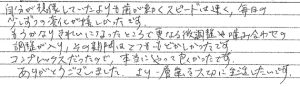 自分が想像していたよりも歯が動くスピードは速く、毎日の
少しずつの変化が嬉しかったです。
もうかなりきれいになったところで更なる後調整や噛み合わせの
調整が入り、その期間はとてももどかしかったです。
コンプレックスだったので、本当にやって良かったです。
ありがとうございました。より一層歯を大切に生活したいです。